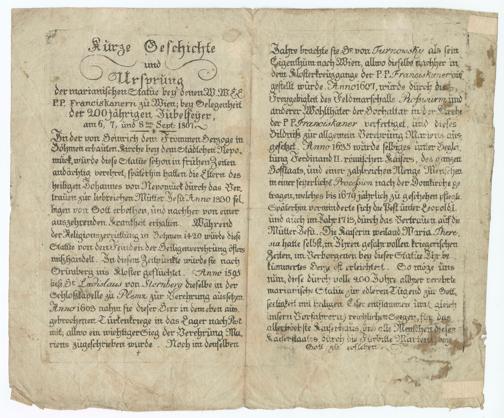 Kurze Geschichte
und
Ursprung
der marianischen Statue bey denen W.W.E.E.
P.P. Franciskanern zu Wien; bey Gelegenheit
der 200 jährigen Jubelfeyer,
am 6, 7, und 8 Sept. 1807.
In der von Heinrich dem Frommen Herzoge in
Böhmen erbauten Kirche bey dem Städtchen Nepo-
muck, würde diese Statue schon in frühen Zeiten
andächtig verehret, späterhin hatten die Eltern des
heiligen Johannes von Nepomuck durch das Ver-
trauen zur liebreichen Mutter Jesu Anno 1330 sel-
bigen von Gott erbethen, und nachher von einer
auszehrenden Krankheit erhalten. Während
der Religionszerrüttung in Böhmen 1420 würde diese
Statue von den Feinden der Heiligenverehrung öfters
mishandelt. In diesem Zeitpunkte würde sie nach
Grünberg ins Kloster geflüchtet. Anno 1595
Ladislaus von Sternberg dieselbe in der
Schloskapelle zu zur Verehrung aussetzen
Anno 1603 nahm sie dieser Herr in dem eben aus-
gebrochenen Türkenkriege in das Lager nach
mit, allwo ein wichtiger Sieg der Verehrung Ma-
riens zugeschrieben wurde. Noch im denselben
Jahre brachte sie von Turnowsky als sein
Eigenthum nach Wien, allwo dieselbe nachher in
dem Klosterkreuzgange der P.P. Franciskaner auf-
gestellt würde. Anno 1607, würde durch die
Freygebigkeit des Feldmarschalls und
anderer Wohlthäter der Hochaltar in der Kirche
der P.P. Franciskaner verfertiget, und dieses
Bildniß zur allgemeinen Verehrung Mariens aus-
gesetzt. Anno 1633 würde selbiges unter Beglei-
tung Ferdinand II. römischen Kaisers, des ganzen
Hofstaats, und einer zahlreichen Menge Menschen
in einer feyerlichst Procession nach der Domkirche ge-
tragen, welches bis 1676 jährlich zu geschehen pflegte
Späterhin verminderte sich die Pest unter Leopold I.
und auch im Jahr 1713, durch das Vertrauen auf die
Mutter Jesu. Die Kaiserin weiland Maria There-
sia hatte selbst, in Ihren gefahrvollen kriegerischen
Zeiten, im Verborgenen bey dieser Statue Ihr be-
kümmertes Herz oft erleichtert. So möge uns
nun, diese durch volle 400 Jahre allhier verehrte
marianische Statue, zur ächten Tugend zur Gott-
seligkeit mit heiligen Eifer entflammen und, gleich
unsern Vorfahren reichlichen Seegen, für das
allerhöchste Kaiserhaus, und alle Menschen dieses
Kaiserstaates, durch die Fürbitte Mariens bey
Gott